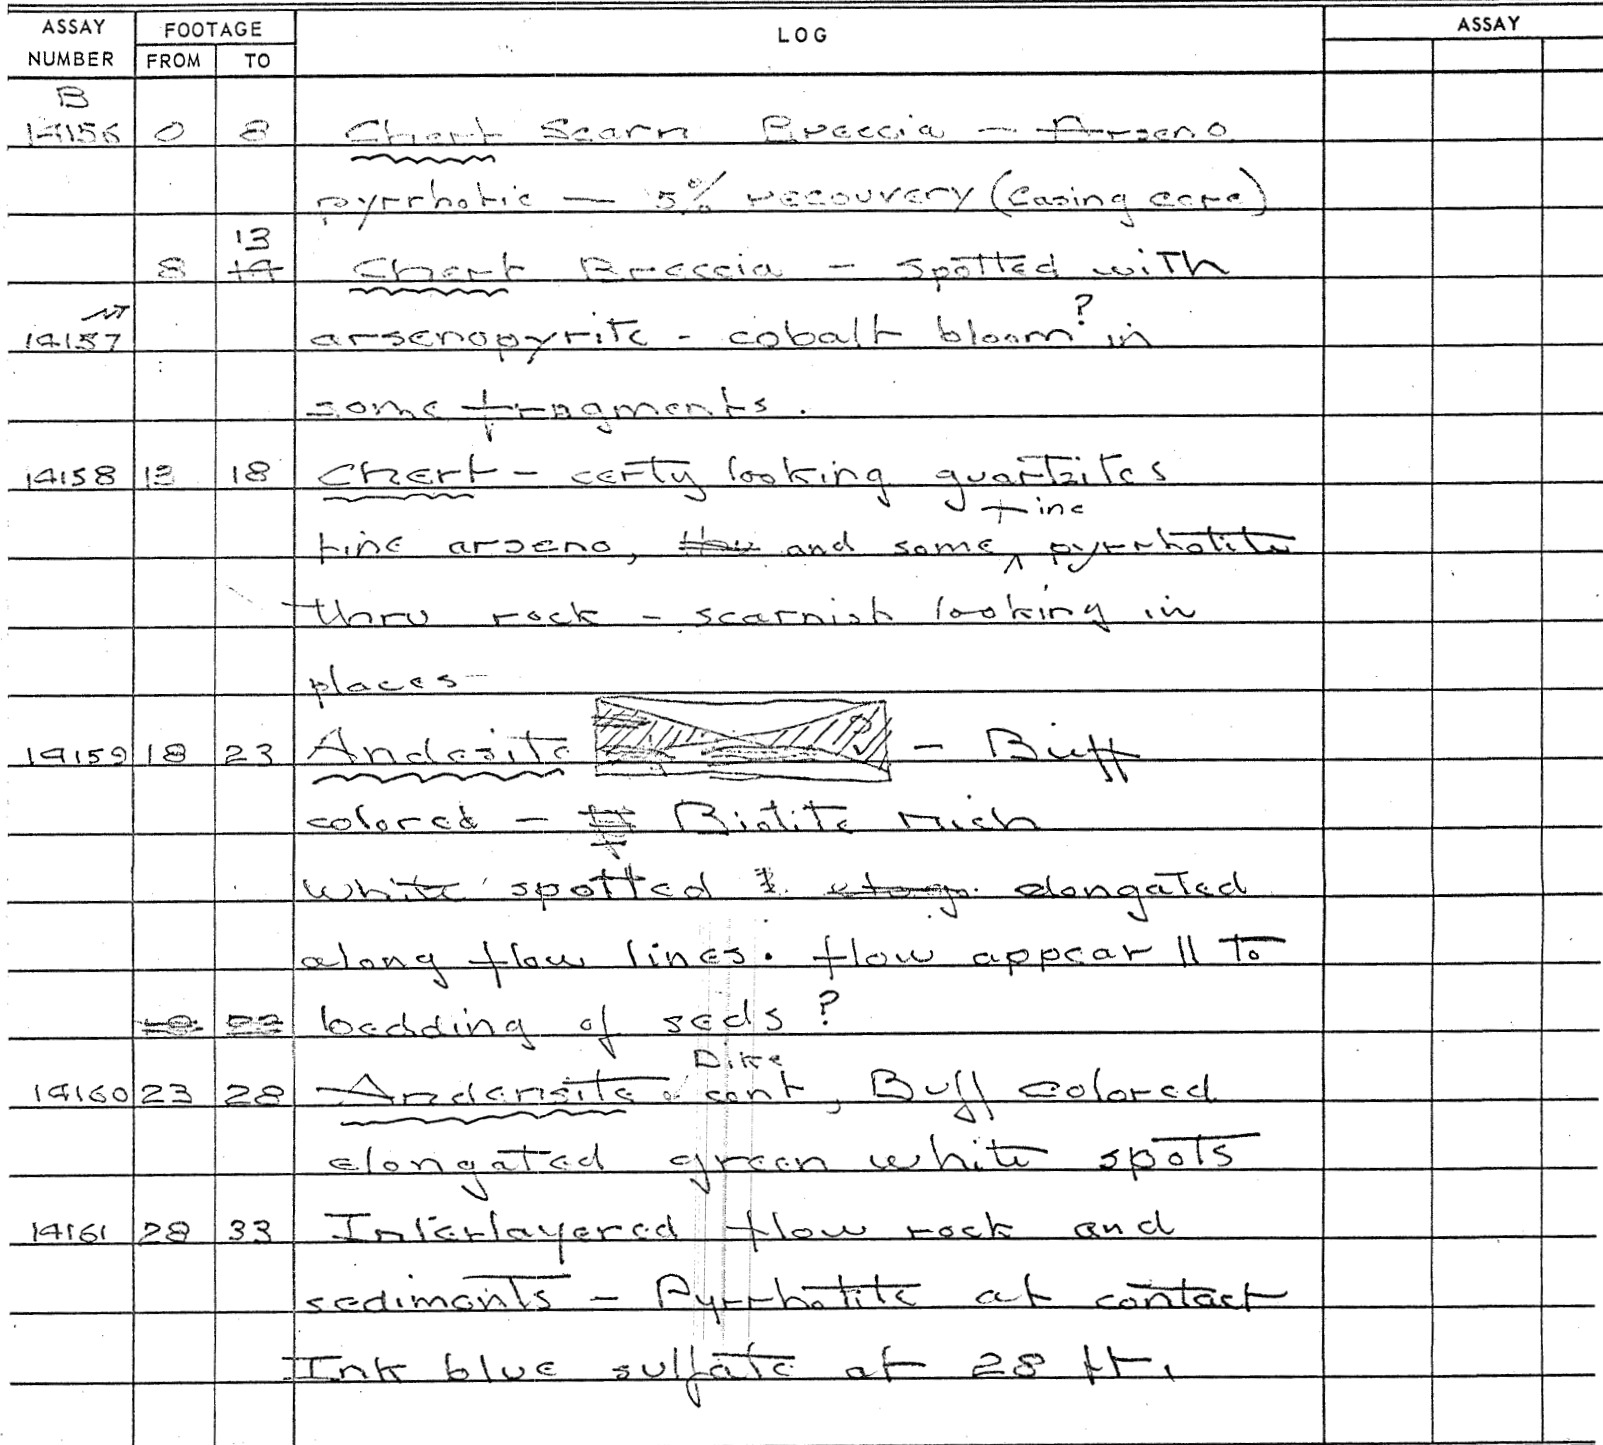 ASSAY NUMBER FOOTAGE LOG ASSAY
FROM TO
B
14156 0 8 Chert Scarn Breccia - Arseno
pyrrhotie - 5% recouvery (Casing core)
13
8 14 Chert Breccia - spotted with
14157 arsenopyrite - cobalt bloom? in
some fragments.
14158 13 18 Chert - certy looking quartzites
fine
fine arseno, and some pyrrhotite
thru rock - scarnish looking in
places -
14159 18 23 Andesite - Buff
colored - Biotite rich
white spotted & elongated
along flow lines. flow appear || to
bedding of seds?
Dike
14160 23 28 Andensite cont, Buff colored
elongated green white spots
14161 28 33 Interlayered flow rock and
sediments - Pyrrhotite at contact
Ink blue sulfate at 28 ft.